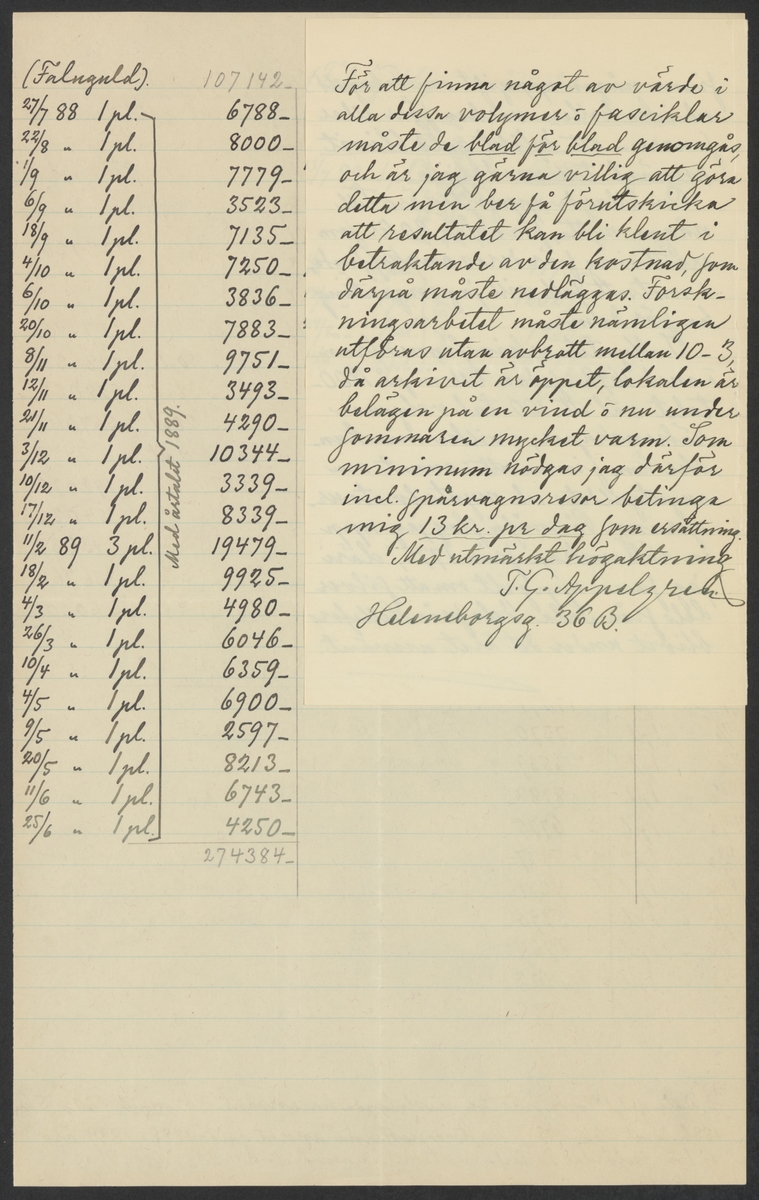 (Falnguld). 107142_
27/7 88 1 pl. 6788_
22/8 " 1 pl. 8000_
1/9 " 1 pl. 7779_
6/9 " 1 pl. 3523_
18/9 " 1 pl. 7135_
4/10 " 1 pl. 7250_
6/10 " 1 pl. 3836_
20/10 " 1 pl. 7883_
8/11 " 1 pl. 9751_
12/11 " 1 pl. 3493_
21/11 " 1 pl. 4290_
3/12 " 1 pl. 10344_
10/12 " 1 pl. 3339_
17/12 " 1 pl. 8339_
11/2 89 3 pl. 19479_
18/2 " 1 pl. 9925_
4/3 " 1 pl. 4980_
26/3 " 1 pl. 6046_
10/4 " 1 pl. 6359_
4/5 " 1 pl. 6900_
9/5 " 1 pl. 2597_
20/5 " 1 pl. 8213_
11/6 " 1 pl. 6743_
25/6 " 1 pl. 4250_
274384_
Med årtalet 1889.
För att finna något av värde i
alla dessa volymer o fasciklar
måste de blad för blad genomgås,
och är jag gärna villig att göra
detta men ber få förutskicka
att resultatet kan bli klent i
betraktande av den kostnad, som
därpå måste nedläggas. Forsk-
ningsarbetet måste nämligen
utföras utan avbrott mellan 10-3,
då arkivet är öppet, lokalen är
belägen på en vind o nu under
sommaren mycket varm. Som
minimum nödgas jag därför
incl. spårvagnsresor betinga
mig 13 kr. pr dag som ersättning.
Med utmärkt högaktning
T. G. Appelgren
Heleneborgsg. 36 B.